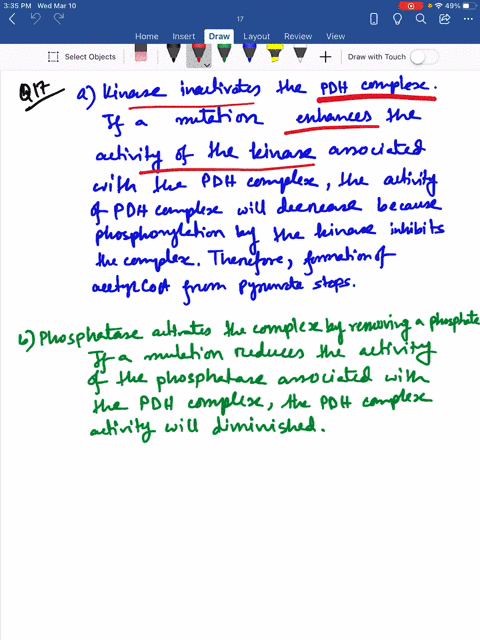 3:35 PM Wed Mar 10
49%
17
Home Insert Draw Layout Review View
Select Objects
Draw with Touch
Q17 a) Kinase inactivates the PDH complex.
If a mutation enhances the
activity of the kinase associated
with the PDH complex, the activity
of PDH complex will decrease because
phosphorylation by the kinase inhibits
the complex. Therefore, formation of
acetyl CoA from Pyruvate stops.
b) Phosphatase activates the complex by removing a phosphate
If a mutation reduces the activity
of the phosphatase associated with
the PDH complex, the PDH complex
activity will diminished.